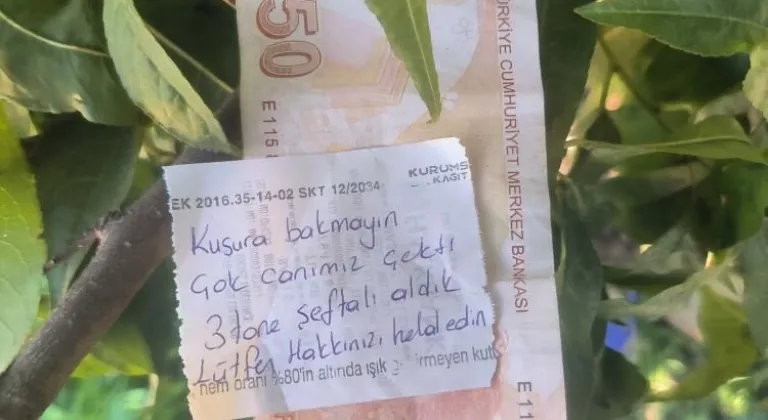 50
E 115
TÜRKİYE CUMHURİYET MERKEZ BANKASI
E 11
EK 2016.35-14-02 SKT 12/2034
KURUMS
KAĞIT
Kusura bakmayın
Çok canımız çekti
3 tane şeftali aldık
Lütfen Hakkınızı helal edin
nem oranı %80'in altında ışık kutu